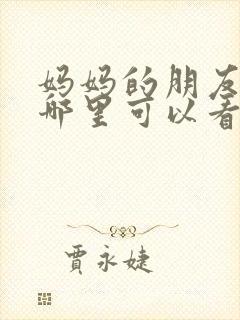 妈妈的朋友
哪里可以看
賈永婕